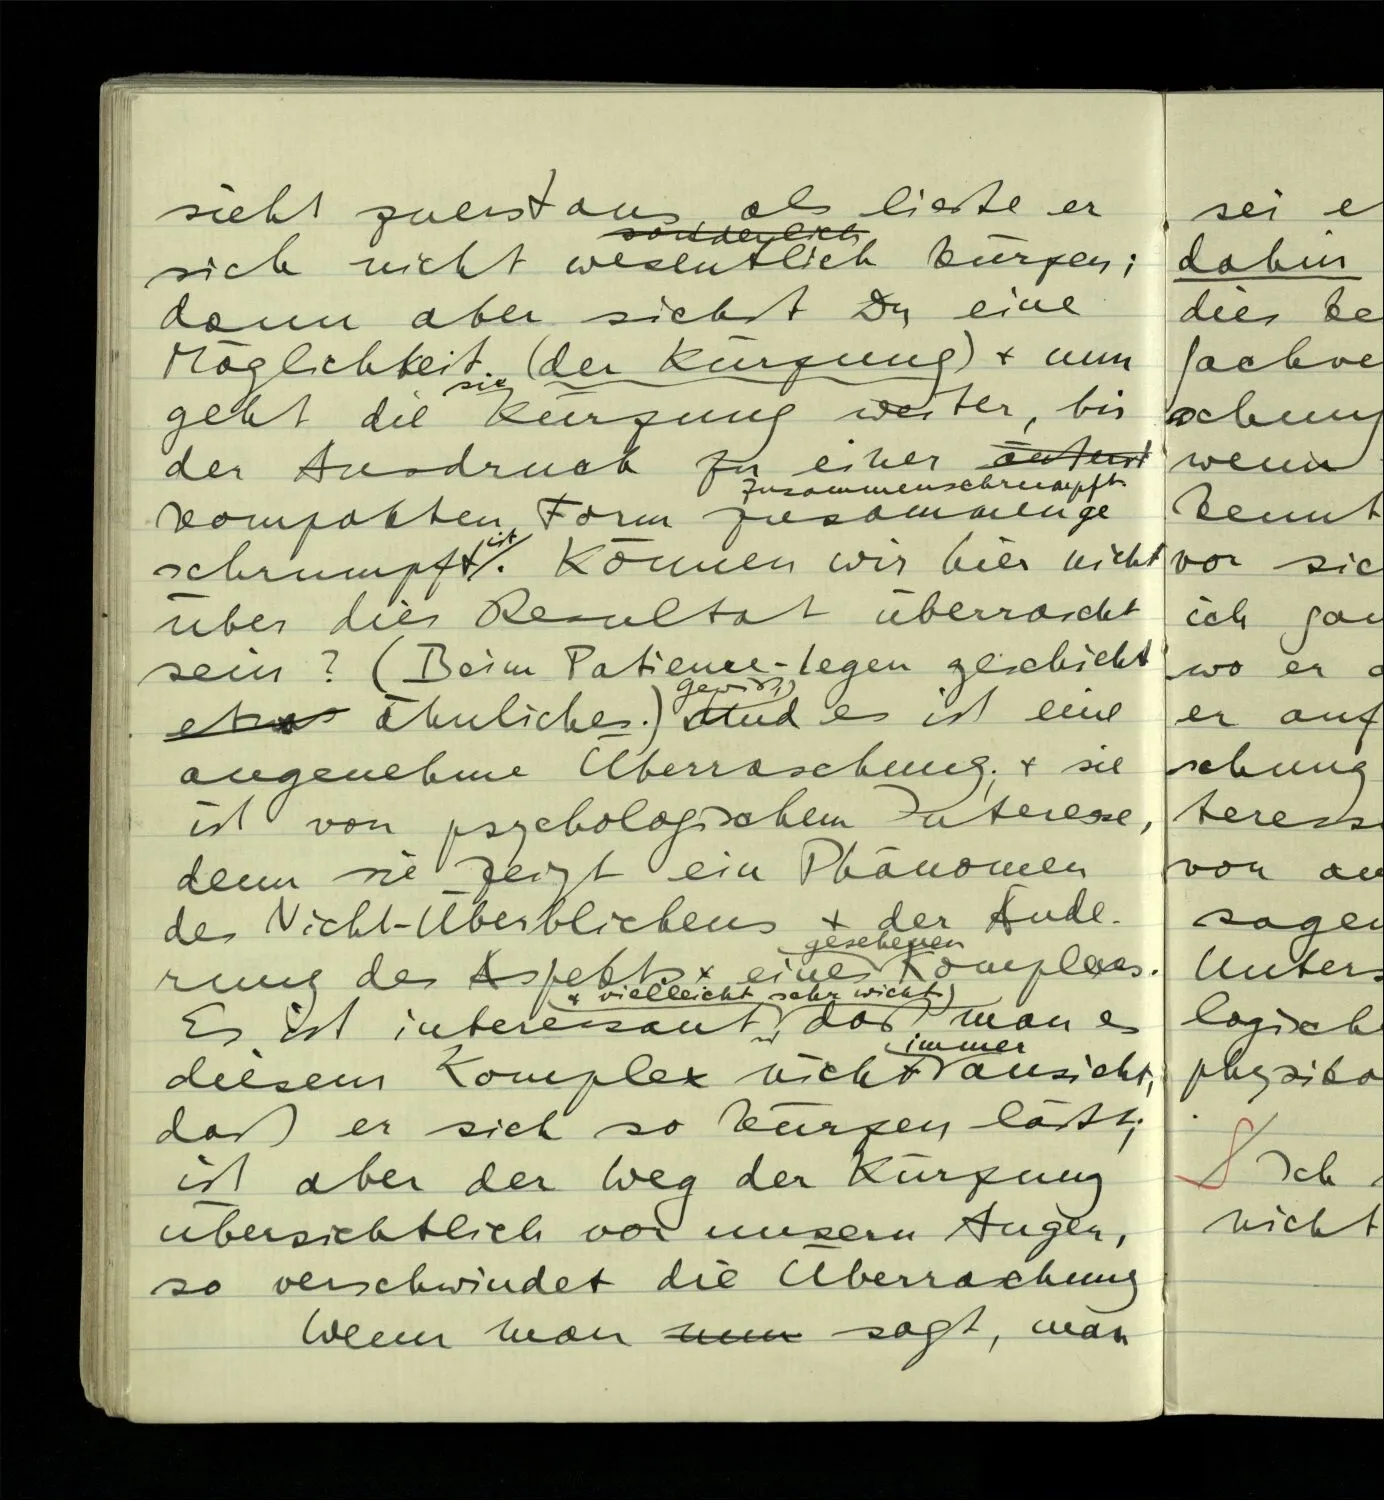 sieht zuerst aus, als ließe er
sonderlich
sich nicht wesentlich kürzen;
dann aber siehst Du eine
Möglichkeit. (der Kürzung) + nun
sie
geht die Kürzung weiter, bis
der Ausdruck zu einer äußerst
zusammenschrumpft
kompakten Form zusammenge
ist
schrumpft. Können wir hier nicht
über dies Resultat überrascht
sein? (Beim Patience-legen geschieht
gewiß,
etwas ähnliches.) Und es ist eine
angenehme Überraschung; + sie
ist von psychologischem Interesse,
denn sie zeigt ein Phänomen
des Nicht-Überblickens + der Ände-
gesehenen
rung des Aspekts eines Komplexes.
(+ vielleicht sehr wicht.)
Es ist interessant, daß man es
immer
diesem Komplex nicht ansieht,
daß er sich so kürzen läßt;
ist aber der Weg der Kürzung
übersichtlich vor unsern Augen,
so verschwindet die Überraschung
Wenn man nun sagt, man
sei e
dahin
dies be
Fachve
schung
wenn
kennt
vor sic
ich gan
wo er
er auf
schung
teress
von an
sagen
Unters
logisch
physika
Ich
nicht